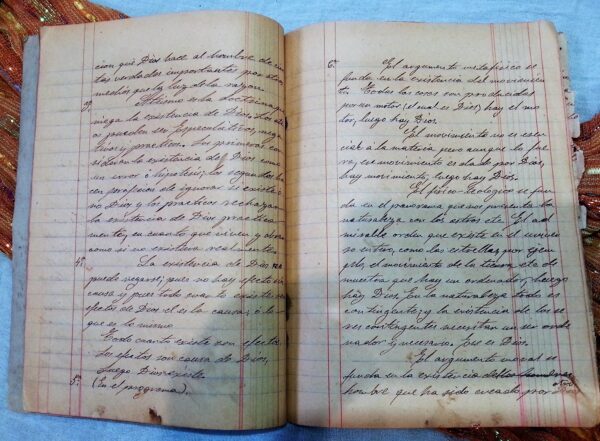 ción que Dios hace al hombre de cier-
tas verdades importantes por otros
medios que la luz de la razón.
3º Ateismo es la doctrina que
niega la existencia de Dios. Los ateos
pueden ser especulativos, nega-
tivos y practicos. Los primeros con-
sideran la existencia de Dios como
un error ó hipotesis; los segundos ha-
cen profesion de ignorar si existe ó
no Dios y los practicos rechazan
la existencia de Dios practica-
mente, en cuanto que viven y obran
como si no existiera realmente.
4º La existencia de Dios no
puede negarse; pues no hay efecto sin
causa y pues todo cuanto existe es
efecto de Dios el es la causa; ó lo
que es lo mismo
Todo cuanto existe son efectos
Los efectos son causa de Dios,
Luego Dios existe.
5º (En el programa).
6º El argumento metafisico se
funda en la existencia del movimien-
to. Todas las cosas son producidas
por un motor (el cual es Dios; hay el mo-
tor, luego hay Dios.
El movimiento no es esen-
cial á la materia pero aunque lo fue-
re, ese movimiento es dado por Dios,
hay movimiento, luego hay Dios.
El fisico-teologico se fun-
da en el panorama que nos presenta la
naturaleza con los astros etc. El ad-
mirable orden que existe en el univer-
so entero, como las estrellas por ejem-
plo, el movimiento de la tierra etc de-
muestra que hay un ordenador, luego
hay Dios. En la naturaleza todo es
contingente; y la existencia de los se-
res contingentes necesitan un ser orde-
nador y necesario. Que es Dios.
El argumento moral se
funda en la existencia
hombre que ha sido creado por otro